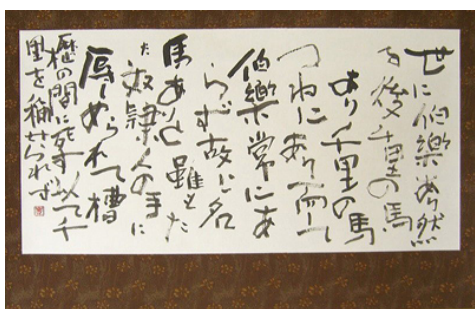 世に伯樂あり然
る後千里の馬
あり千里の馬
つねにあり而して
伯樂常にあ
らず故に名
馬ありと雖もた
だ奴隷人の手に
辱しめられて槽
櫪の間に死す以て千
里を稱せられず